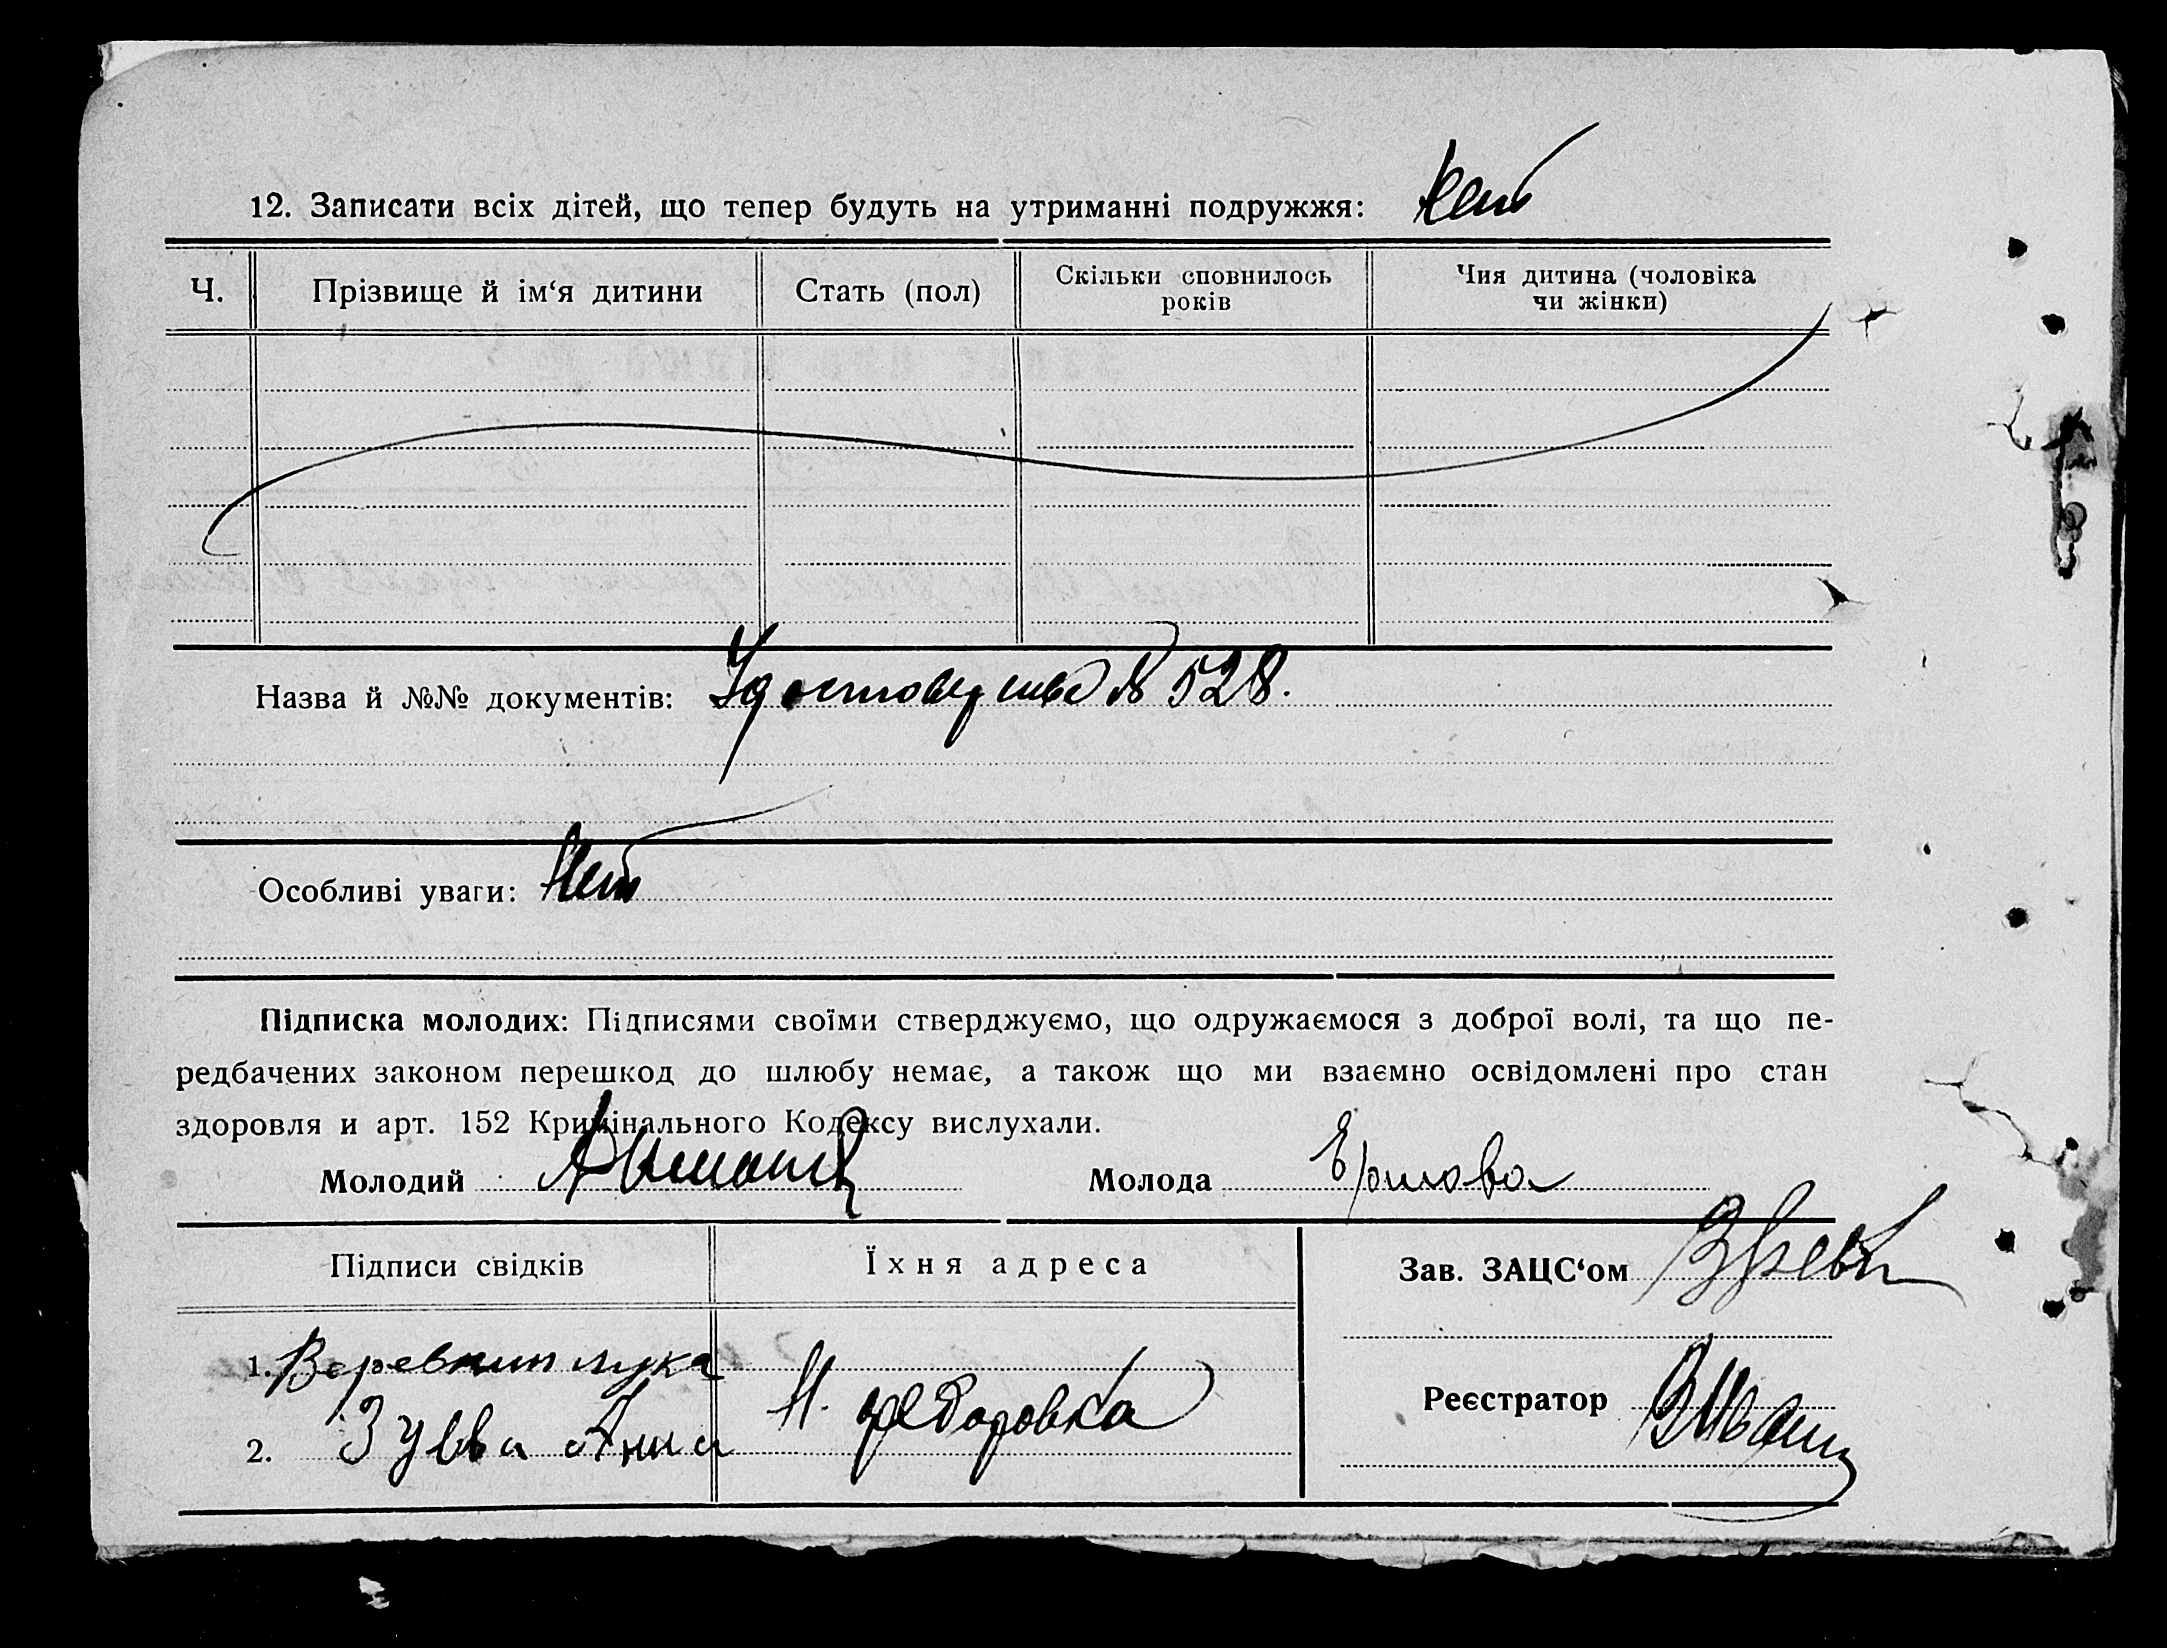 12. Записати всіх дітей, що тепер будуть на утриманні подружжя: нет
Ч. Прізвище й ім‘я дитини Стать (пол) Скільки сповнилось років Чия дитина (чоловіка чи жінки)
Назва й №№ документів: № 528.
Особливі уваги: Нет
Підписка молодих: Підписями своїми стверджуємо, що одружаємося з доброї волі, та що пе-
редбачених законом перешкод до шлюбу немає, а також що ми взаємно освідомлені про стан
здоровля и арт. 152 Кримінального Кодексу вислухали.
Молодий Молода Ершова
Підписи свідків Їхня адреса Зав. ЗАЦС‘ом
1. Веревкин лука
Реєстратор
2. Зуева Анна Н. федоровка